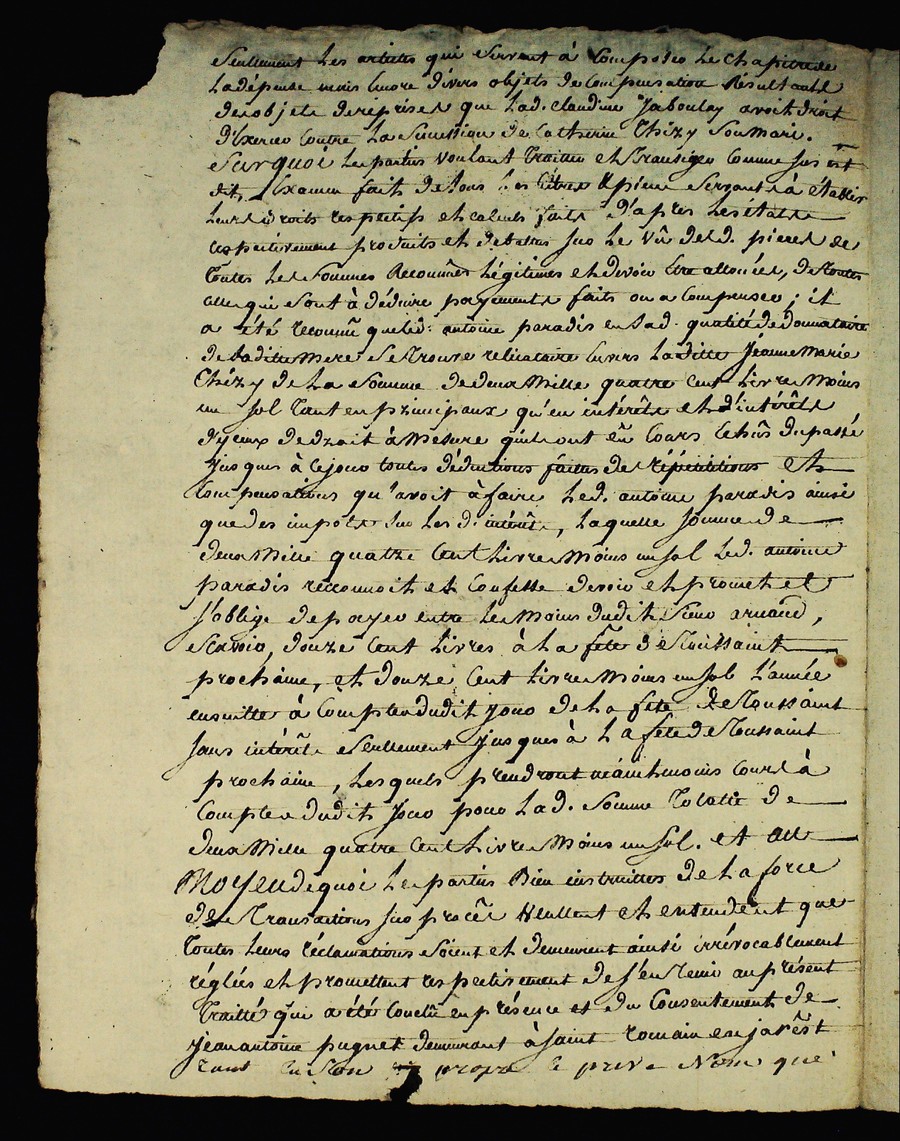 Seullement les articles qui servent à Composer Le Chapitre de
La dépense mais Encore divers objets de Compensation Résultants
des objets de reprises que Lad. claudine Jaboulay avoit droit
d'Exercer Contre La Succession de Catherin Thizy Son mari.
Sur quoi Les parties voulant Traiter et Transiger Comme Sus est
dit, Examen fait de tous Les titres & pièces Servants à établir
Leurs droits respectifs et calculs faits d'après Les états
respectivement produits et debattus sur Le vû desd. pieces de
Toutes Les Sommes Reconnües Légitimes et devoir être allouées, de Toutes
celles qui Sont à déduire payements faits ou a Compenser; il
a été reconnu que led: antoine paradis en sad. qualité de Donnataire
de Saditte Mere Se Trouve reliquataire Envers Laditte Jeanne Marie
Thizy de La Somme de deux Mille quatre cent Livres Moins
un Sol Tant en principaux qu'en intérêts et d'intérêts
d'yceux de droit à Mesure qu'ils ont eü Cours Echûs du passé
jusques à ce jour toutes déductions faites des répétitions et
Compensations qu'avoit à faire Led. antoine paradis ainsi
que des impots sur Les d. intérêts, Laquelle Somme de
deux Mille quatre Cent Livres Moins un sol Led. antoine
paradis reconnoit et Confesse devoir et promet et
s'oblige de payer entre Les Mains dudit Sieur arnaud,
Scavoir, douze Cent Livres à La fête de Toussaint
prochaine, et douze Cent Livres Moins un sol L'année
ensuitte à Compter dudit jour de La fête de Toussaint
sans intérêts Seullement jusques à La fête de Toussaint
prochaine, Lesquels prendront néantmoins Cours à
Compter dudit jour pour Lad. Somme Totalle de
deux Mille quatre Cent Livres Moins un sol. et au
Moyen de quoi Les parties Bien instruittes de La force
des Transactions sur procès Veullent et entendent que
Toutes Leurs réclamations Soient et demeurent ainsi irrévocablement
réglées et promettent respectivement de s'en Tenir au présent
Traitté qui a été Conclu en présence et du Consentement de
jean antoine pugnet demeurant à Saint romain en jarêst
Tant En Son propre & privé Nom que